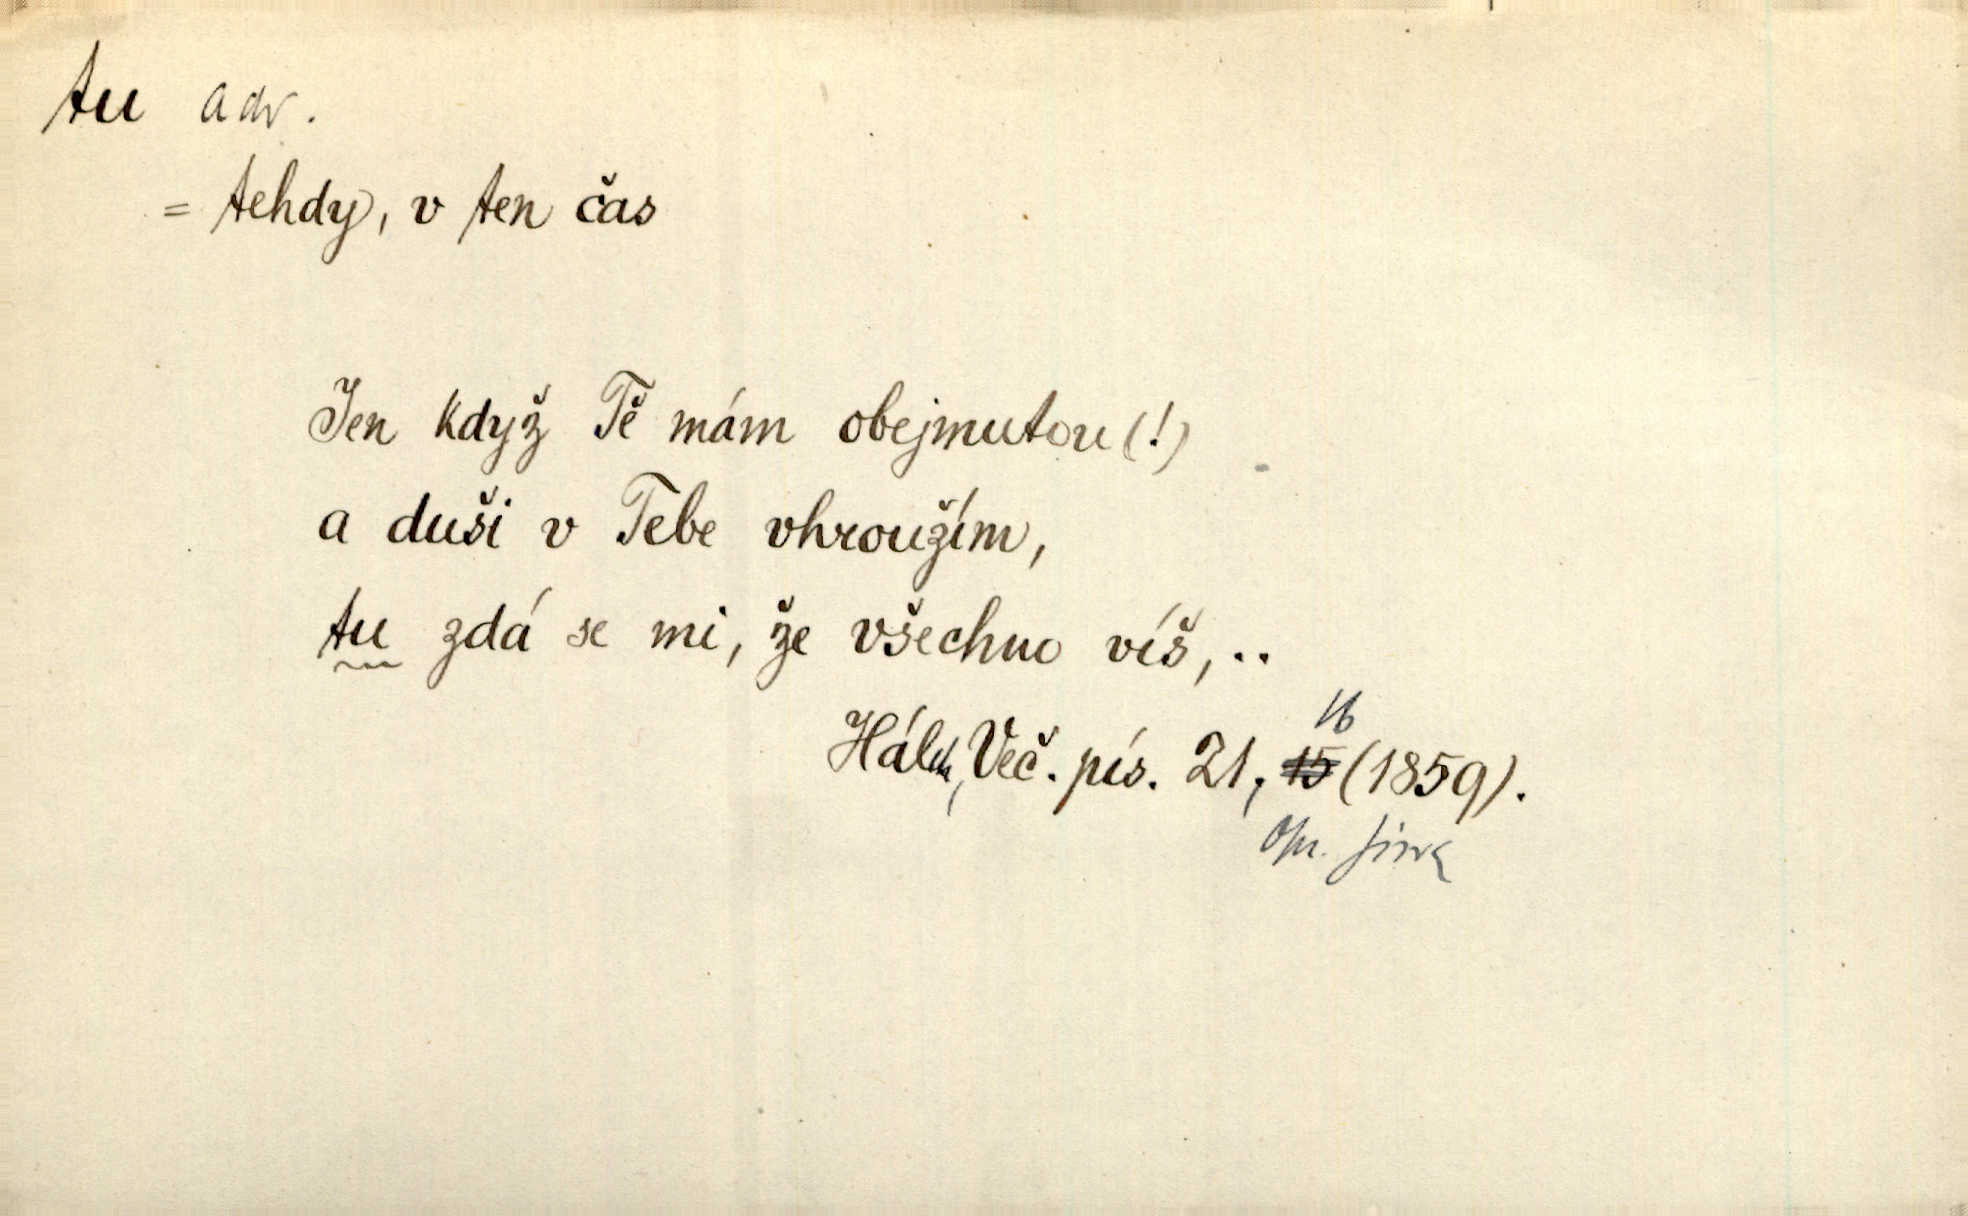 tu adv.
= tehdy, v ten čas
Jen když Tě mám obejmutou (!)
a duši v Tebe vhroužím,
tu zdá se mi, že všechno víš, ..
16
Hálek, Več. pís. 21, 15 (1859).